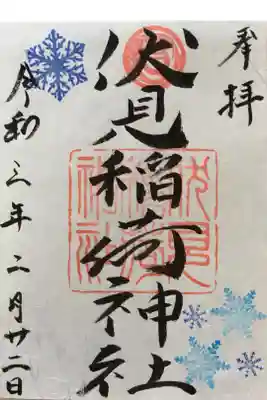 奉拝
伏見稲荷神社
令和三年二月廿二日